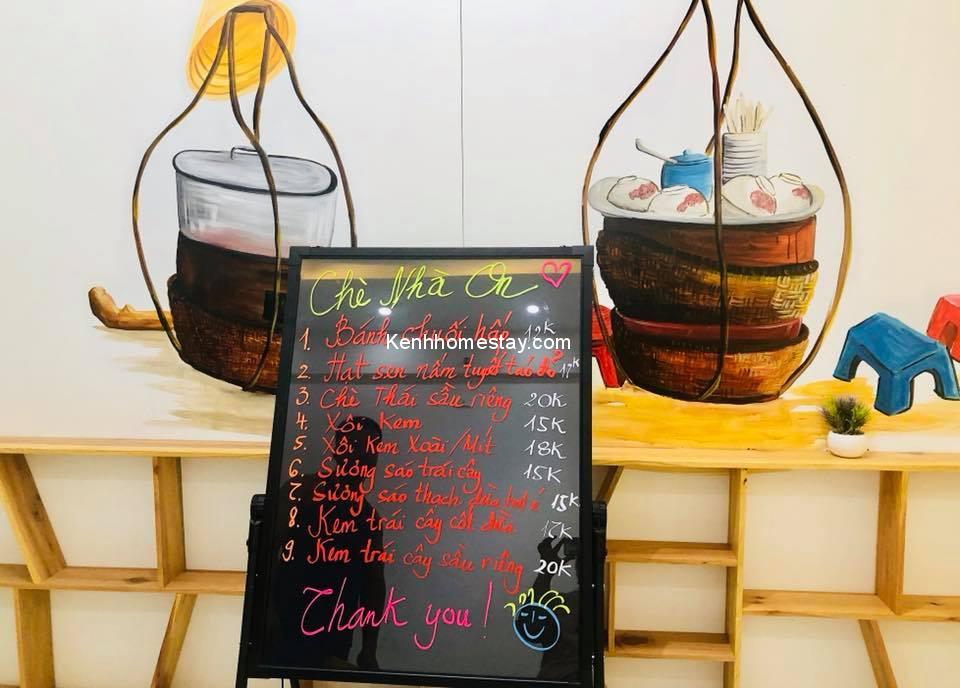 Chè Nhà Ơn
1. Bánh chuối hấp 12K
Kenhhomestay.com
2. Hạt sen nấm tuyết táo đỏ 17K
3. Chè Thái sầu riêng 20K
4. Xôi Kem 15K
5. Xôi Kem Xoài/Mít 18K
6. Sương sáo trái cây 15K
7. Sương sáo thạch dừa hạt é 15K
8. Kem trái cây cốt dừa 17K
9. Kem trái cây sầu riêng 20K
Thank you!